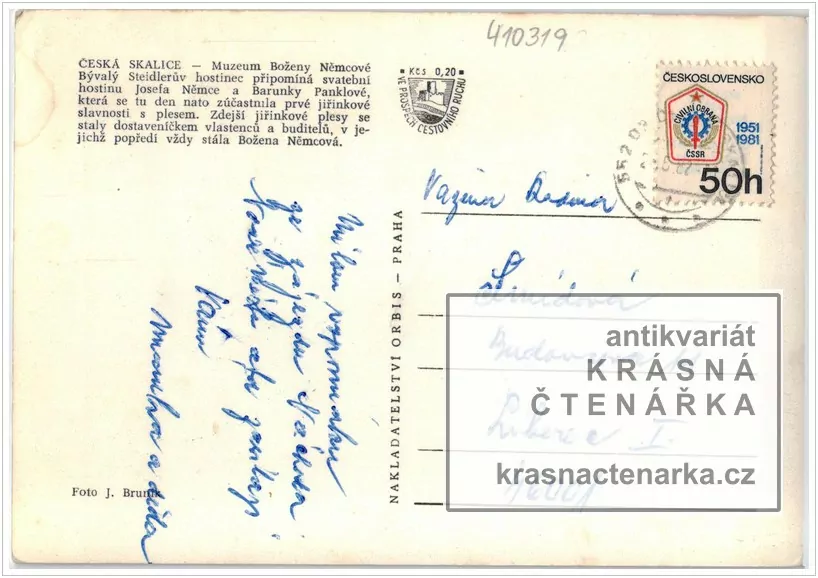 410319
ČESKÁ SKALICE — Muzeum Boženy Němcové
Bývalý Steidlerův hostinec připomíná svatební
hostinu Josefa Němce a Barunky Panklové,
která se tu den nato zúčastnila prvé jiřinkové
slavnosti s plesem. Zdejší jiřinkové plesy se
staly dostaveníčkem vlastenců a buditelů, v je-
jichž popředí vždy stála Božena Němcová.
Kčs 0,20
VE PROSPĚCH CESTOVNÍHO RUCHU
ČESKOSLOVENSKO
CIVILNÍ OBRANA
ČSSR
1951
1981
50h
552 0
Milou vzpomínku
ze zájezdu Náchoda
Nové Město
Vám
a děda
NAKLADATELSTVÍ ORBIS — PRAHA
Vážená
Šmídová
Liberec I.
46001
antikvariát
KRÁSNÁ
ČTENÁŘKA
krasnactenarka.cz
Foto J. Bruník